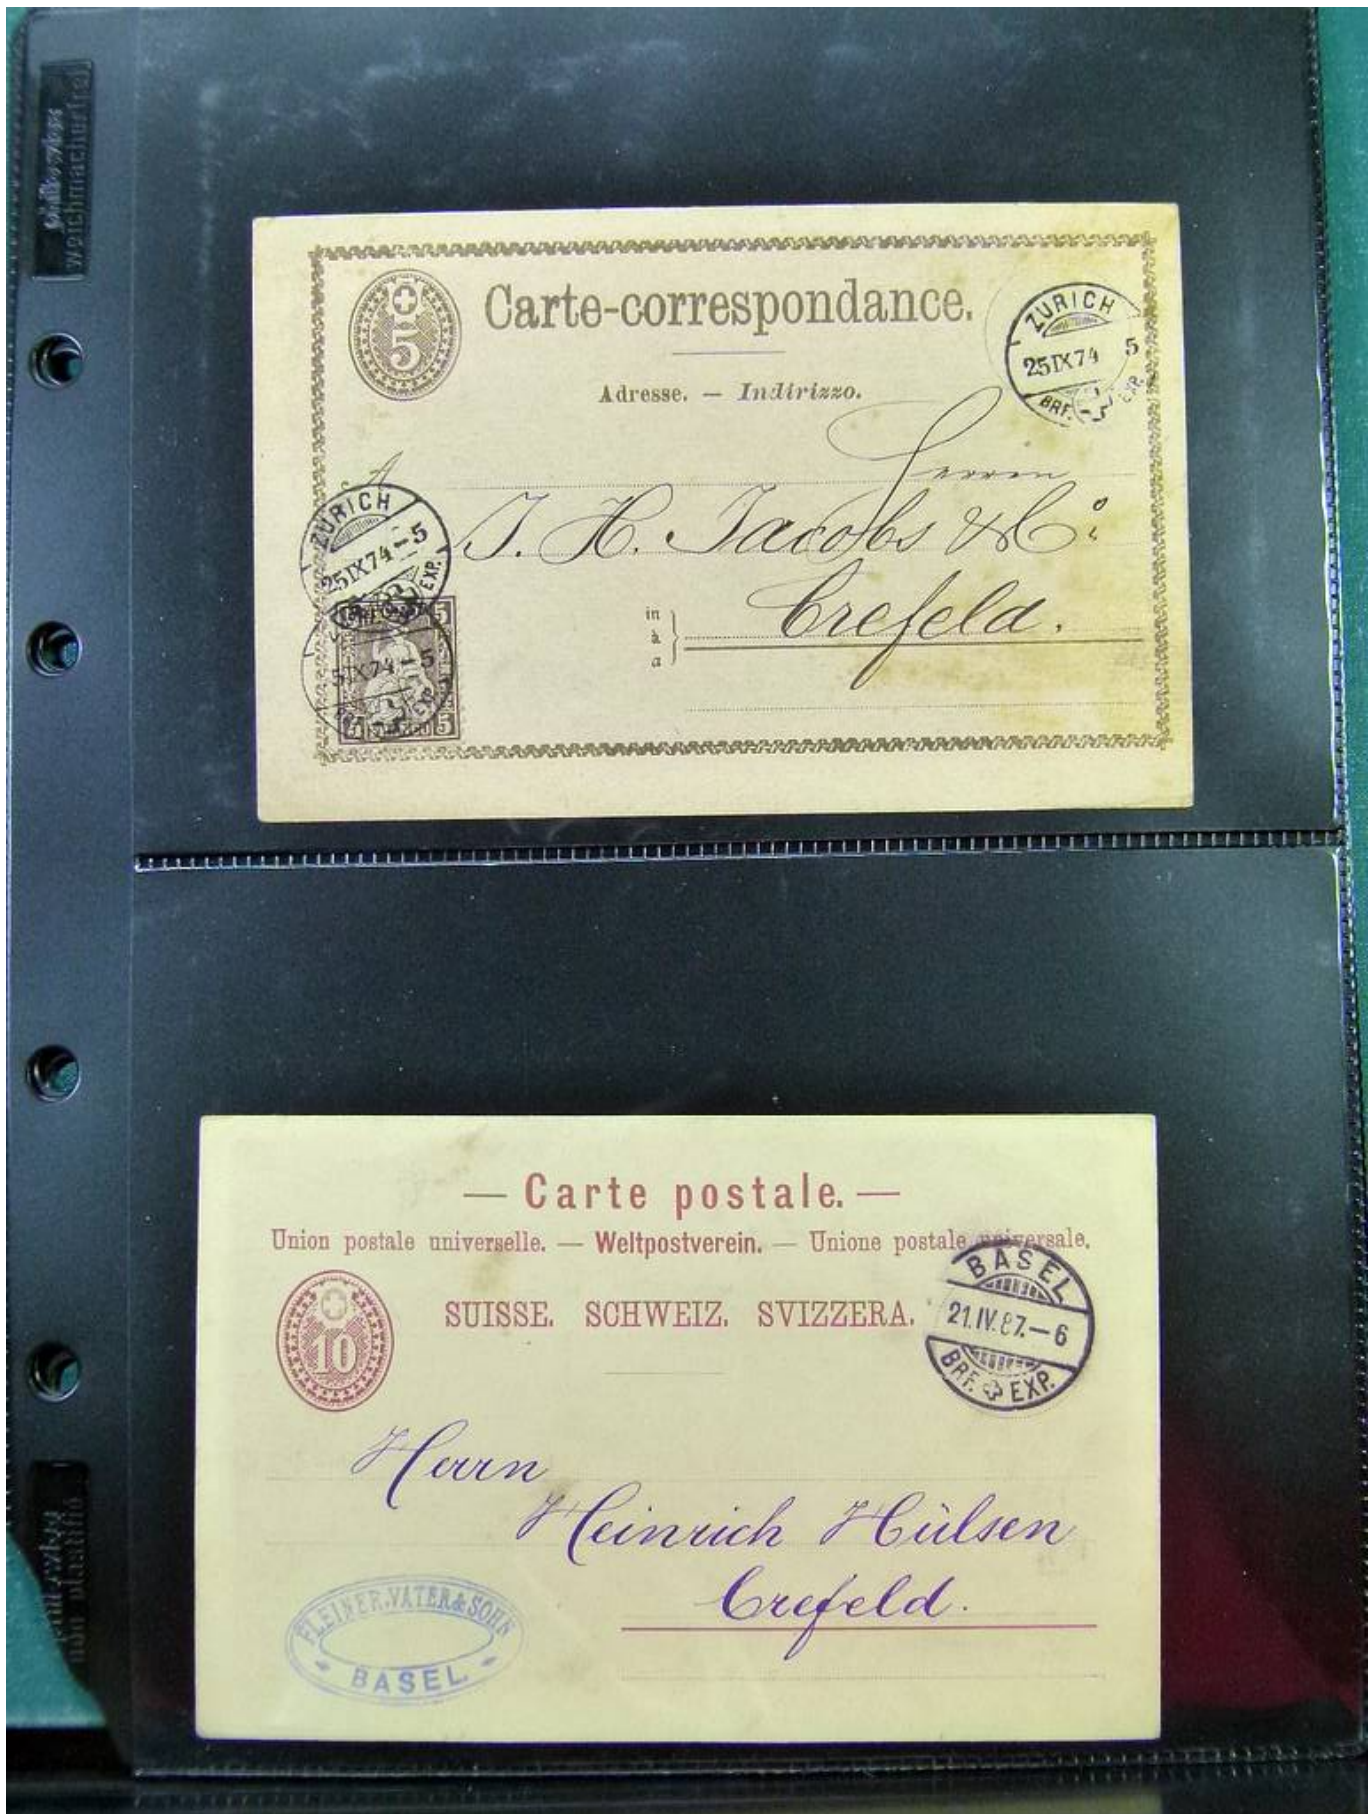 weichmacherfrei
5
Carte-correspondance.
ZURICH
25IX74 5
BRF. EXP.
Adresse. — Indirizzo.
Herren
ZURICH
25IX74-5
EXP.
J. H. Jacobs & Co.
in
à
a
Crefeld.
5
5IX74-5
EXP
5
— Carte postale. —
Union postale universelle. — Weltpostverein. — Unione postale universale.
10
SUISSE. SCHWEIZ. SVIZZERA.
BASEL
21.IV.87.-6
BRF. EXP.
Herrn
Heinrich Hülsen
Crefeld.
FLEINER, VATER & SOHN
BASEL